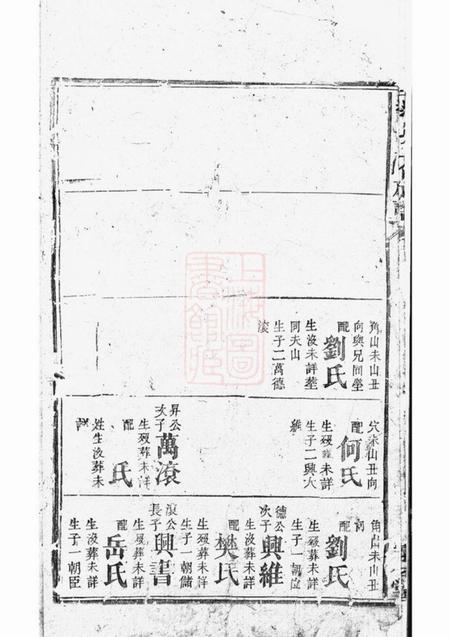 角山未山丑
向與兄同塋
配
劉氏
生沒未詳塟
同夫山
生子二萬德
滾
穴未山丑向
配
何氏
生歿葬未詳
生子二興大
維
昇公
次子
萬滾
生歿葬未詳
配
氏
姓生沒葬未
詳
角山未山丑
向
配
劉氏
生歿葬未詳
生子一朝位
德公
次子
興維
生沒葬未詳
配
樊氏
生歿葬未詳
生子一朝儲
滾公
長子
興書
生歿葬未詳
配
岳氏
生沒葬未詳
生子一朝臣
上海圖
書館藏